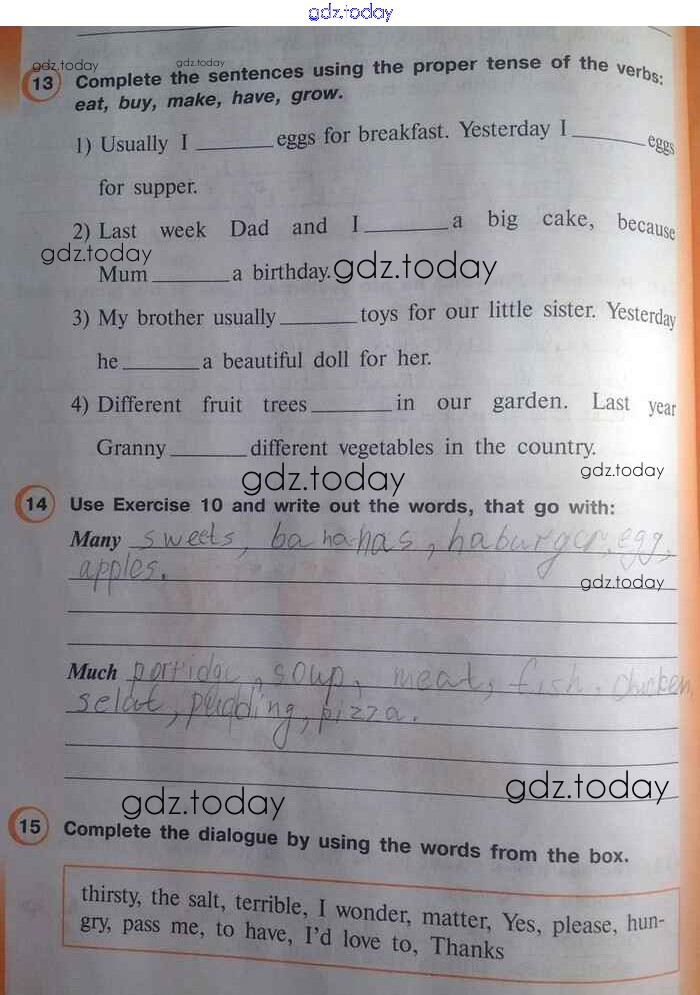 gdz.today
gdz.today gdz.today
13 Complete the sentences using the proper tense of the verbs:
eat, buy, make, have, grow.
1) Usually I ______ eggs for breakfast. Yesterday I ______ eggs
for supper.
2) Last week Dad and I ______ a big cake, because
gdz.today
Mum ______ a birthday. gdz.today
3) My brother usually ______ toys for our little sister. Yesterday
he ______ a beautiful doll for her.
4) Different fruit trees ______ in our garden. Last year
Granny ______ different vegetables in the country.
gdz.today gdz.today
14 Use Exercise 10 and write out the words, that go with:
Many sweets, bananas, haburger, egg,
apples.
gdz.today
Much porridge, soup, meat, fish, chicken,
selat, pudding, pizza.
gdz.today gdz.today
15 Complete the dialogue by using the words from the box.
thirsty, the salt, terrible, I wonder, matter, Yes, please, hun-
gry, pass me, to have, I'd love to, Thanks